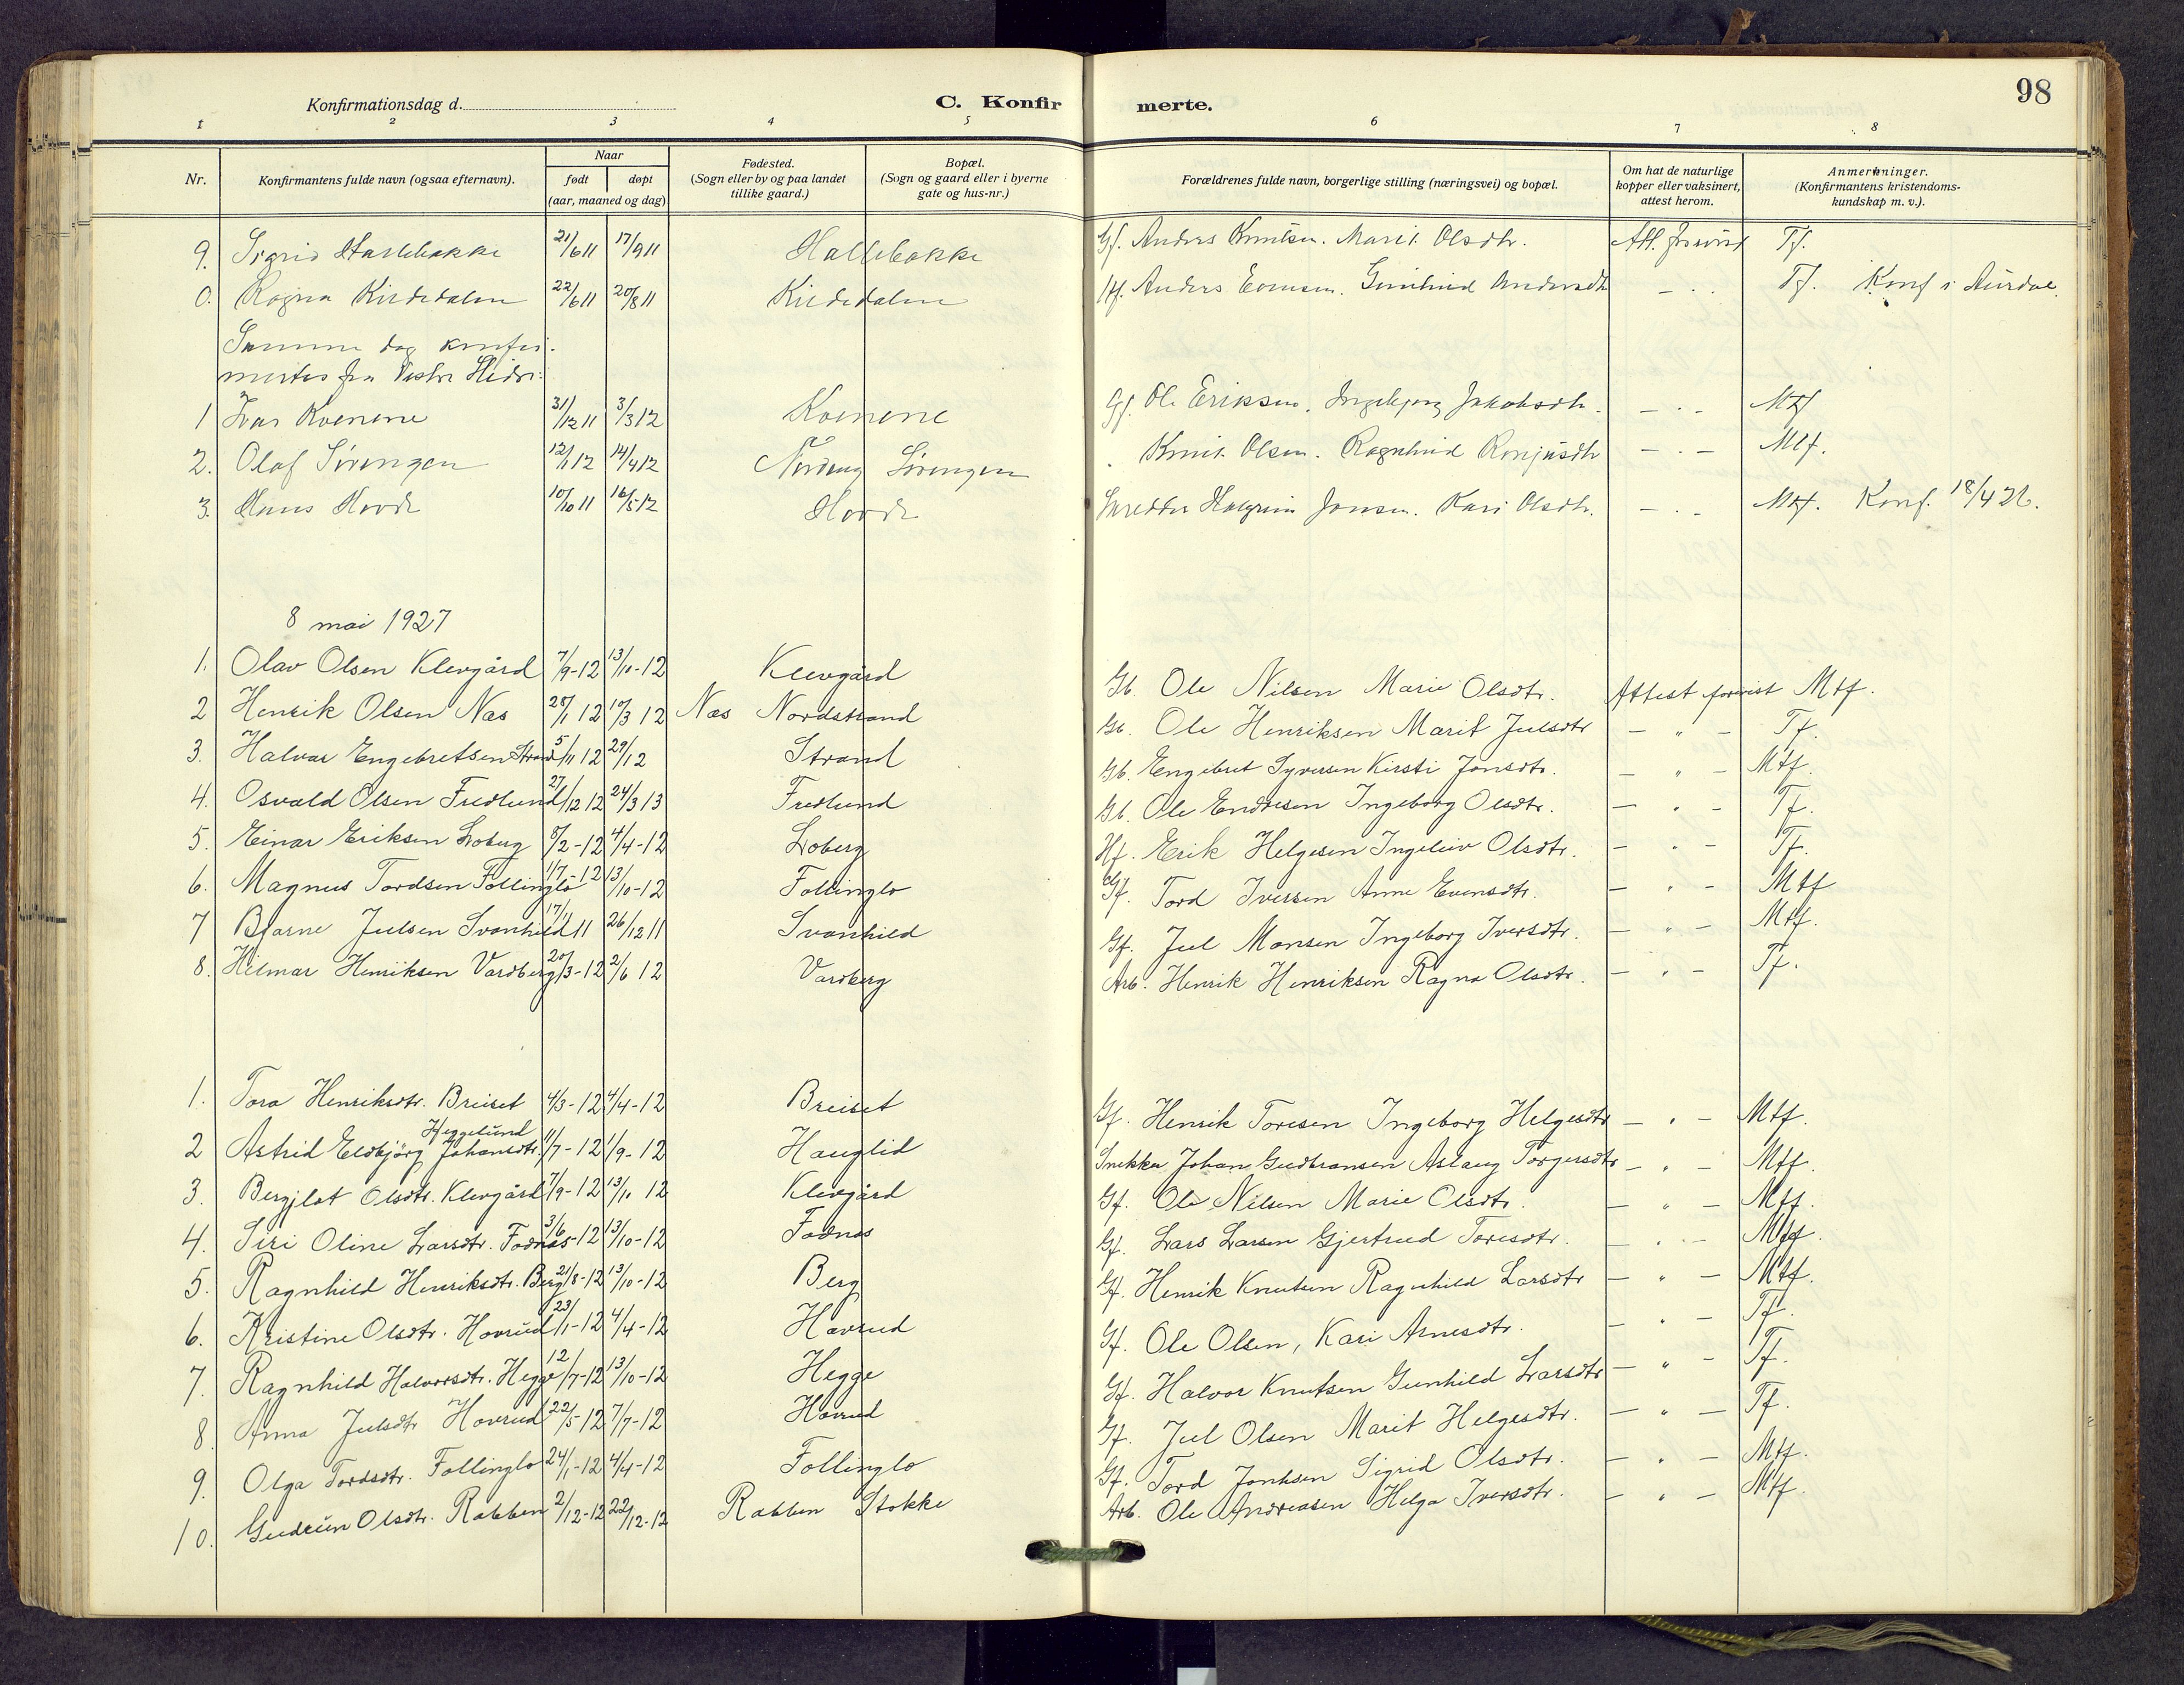 98
Konfirmationsdag d.
C. Konfirmerte.
1 2 3 4 5 6 7 8
Nr. Konfirmantens fulde navn (ogsaa efternavn). Naar født døpt (aar, maaned og dag) Fødested. (Sogn eller by og paa landet tillike gaard.) Bopæl. (Sogn og gaard eller i byerne gate og hus-nr.) Forældrenes fulde navn, borgerlige stilling (næringsvei) og bopæl. Om hat de naturlige kopper eller vaksinert, attest herom. Anmerkninger. (Konfirmantens kristendomskundskap m. v.).
9. Sigrid Hallebakke 21/6 11 17/9 11 Hallebakke Gf. Anders Knutsen. Marit Olsdtr. Att. forevist Tf.
0. Ragna Kirdedalen 22/6 11 20/8 11 Kirdedalen Hf. Anders Gunhild Andersdtr — . . Tf. Konf i Aurdal.
Samme dag konfir-
mertes fra Vestre Slidre:
1 Ivar Kvenene 31/12 11 31/3 12 Kvenene Gf. Ole Eriksen. Ingebjørg Jakobsdtr. — . — Mtf
2. Olaf Sørengen 12/1 12 14/4 12 Nordeng Sørengen Knut Olsen. Ragnhild — . — Mtf.
3. Hans Hovde 10/10 11 16/5 12 Hovde Skredder Halgrim Jonsen. Kari Olsdtr. — . — Mtf. Konf. 18/4 26.
8 mai 1927
1. Olav Olsen Klevgård 7/9-12 13/10-12 Klevgård Gb. Ole Nilsen Marie Olsdtr. Attest forevist Mtf.
2 Henrik Olsen Næs 25/1 12 10/3 12 Næs Nordstrand Gb. Ole Henriksen Marit Julsdtr — " — Tf.
3. Halvar Engebretsen Strand 5/11 12 29/12 Strand Gb. Engebret Syversen Kirsti Jonsdtr. — " — Mtf.
4. Osvald Olsen Fredlund 27/12 12 24/3 13 Fredlund Gb. Ole Endresen Ingeborg Olsdtr. — " — Tf.
5. Einar Eriksen Loberg 5/2-12 4/4-12 Loberg Hf. Erik Helgesen Ingeleiv Olsdtr. — " — Tf.
6. Magnus Tordsen Follinglo 1/7-12 13/10-12 Follinglo Gf. Tord Iversen Anne Evensdtr. — " — Mtf
7 Bjarne Julsen Svanhild 17/11 11 26/12 11 Svanhild Gf. Jul Monsen Ingeborg Iversdtr. — " — Mtf.
8. Hilmar Henriksen Vardberg 20/3-12 2/6 12 Vardberg Arb. Henrik Henriksen Ragna Olsdtr. — " — Tf.
1. Tora Henriksdtr. Breiset 4/3-12 4/4-12 Breiset Gf. Henrik Toresen Ingeborg Helgesdtr — " — Mtf.
Heggelund
2 Astrid Eldbjörg Johansdtr. 11/7-12 1/9-12 Hauglid Snekker Johan Gudbransen Aslaug Torgersdtr — " — Mtf.
3. Bergjlot Olsdtr. Klevgård 7/9-12 13/10 12 Klevgård Gf. Ole Nilsen Marie Olsdtr. — " — Mtf.
4. Siri Oline Larsdtr. Fodnæs 3/6-12 13/10-12 Fodnæs Gf. Lars Larsen Gjertrud Toresdtr. — " — Mtf.
5. Ragnhild Henriksdtr. Berg 21/8-12 13/10-12 Berg Gf. Henrik Knutsen Ragnhild Larsdtr — " — Mtf.
6. Kristine Olsdtr. Hovrud 23/1-12 4/4-12 Hovrud Gf. Ole Olsen, Kari Arnesdtr. — " — Tf.
7. Ragnhild Halvorsdtr. Hegge 12/7-12 13/10-12 Hegge Gf. Halvor Knutsen Gunhild Larsdtr — " — Tf.
8. Anna Julsdtr Hovrud 22/5-12 7/7-12 Hovrud Gf. Jul Olsen Marit Helgesdtr. — " — Tf.
9. Olga Tordsdtr. Follinglo 24/1-12 4/4-12 Follinglo Gf. Tord Sigrid Olsdtr. — " — Mtf.
10. Gudrun Olsdtr. Rabben 2/12-12 22/12-12 Rabben Stokke Arb. Ole Andreasen Helga Iversdtr. — " — Mtf.